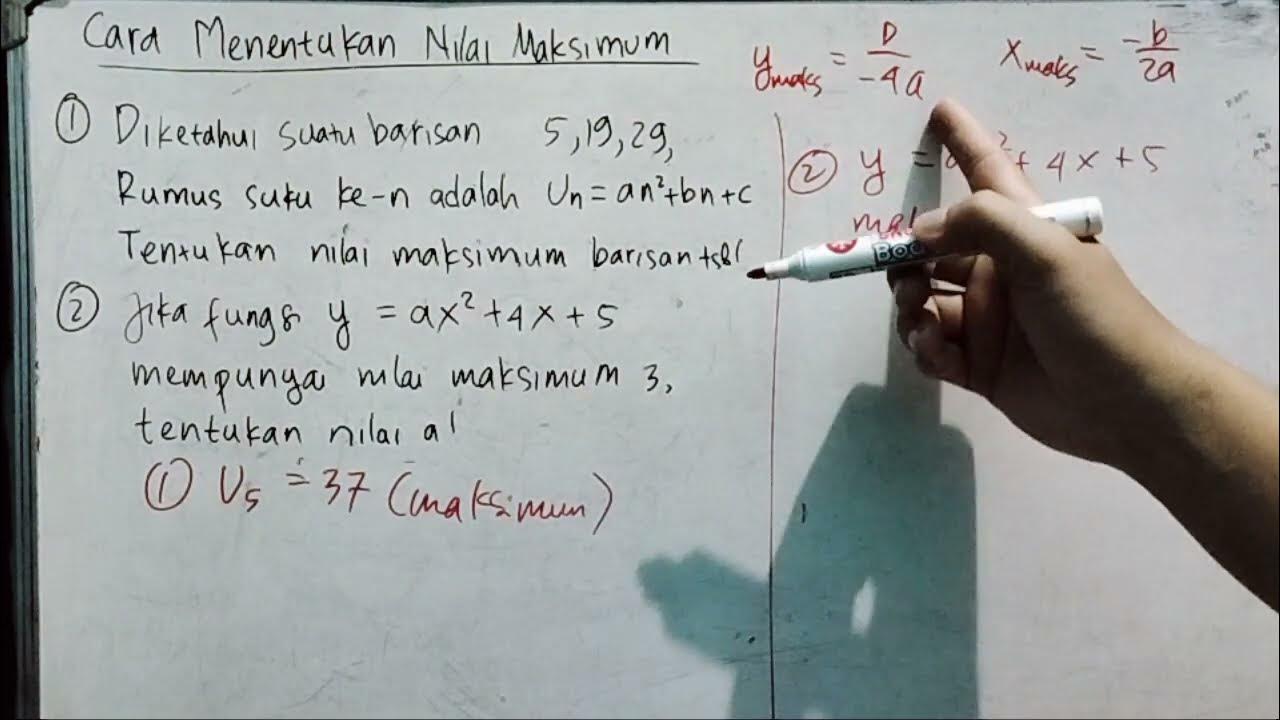 Cara Menentukan Nilai Maksimum
① Diketahui suatu barisan 5, 19, 29,
Rumus suku ke-n adalah Un = an²+bn+c
Tentukan nilai maksimum barisan tsb!
② Jika fungsi y = ax²+4x+5
mempunyai nilai maksimum 3,
tentukan nilai a!
① U₅ = 37 (maksimum)
y maks = D / -4a
x maks = -b / 2a
② y = ² + 4x + 5